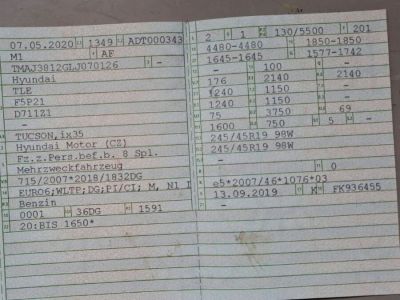 07.05.2020 1349 ADT000343
M1 AF
TMAJ3812GLJ070126 -
Hyundai
TLE
F5P21
D711Z1
TUCSON,ix35
Hyundai Motor (CZ)
Fz.z.Pers.bef.b. 8 Spl.
Mehrzweckfahrzeug
715/2007*2018/1832DG
EURO6;WLTP;DG;PI/CI; M, N1 I
Benzin
0001 36DG 1591
20:BIS 1650*
2 1 130/5500 201
4480-4480 1850-1850
1645-1645 1577-1742
- 100 -
176 2140 2140
1240 1150 -
1240 1150 -
75 3750 69
1600 750 5 -
245/45R19 98W
245/45R19 98W
-
- 0
e5*2007/46*1076*03
13.09.2019 K FK936455
-